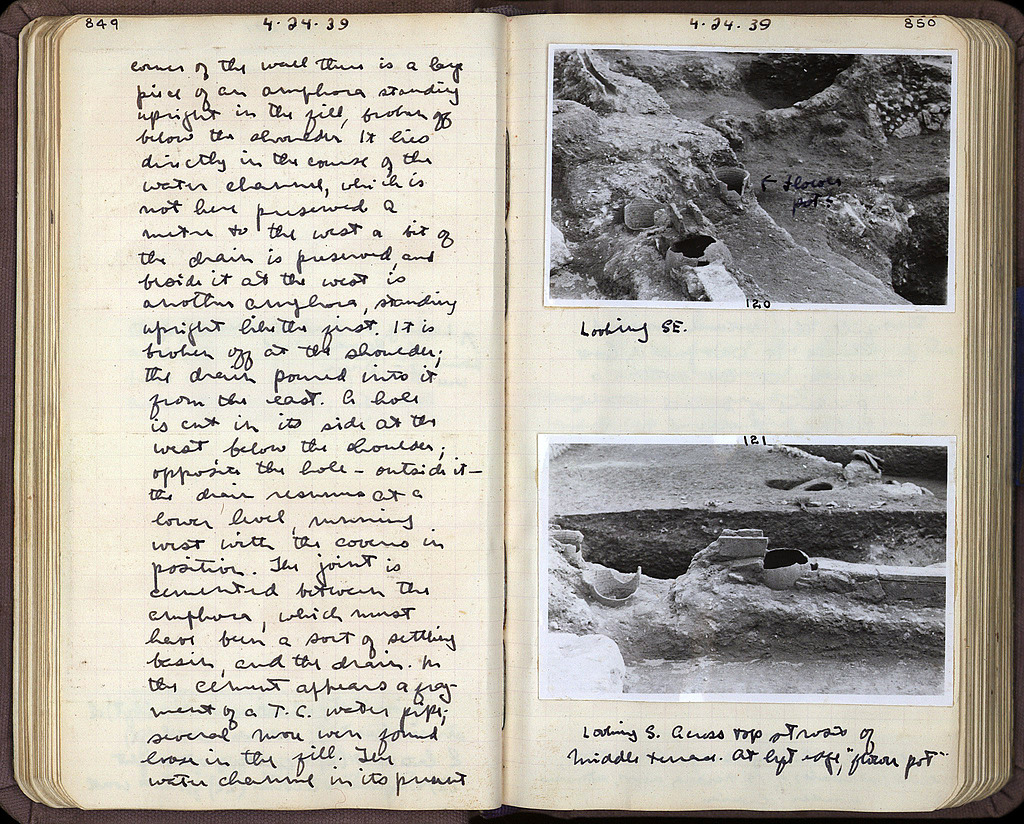 849
4.24.39
corner of the wall there is a large
piece of an amphora standing
upright in the fill, broken off
below the shoulder. It lies
directly in the course of the
water channel, which is
not here preserved. A
metre to the west a bit of
the drain is preserved, and
beside it at the west is
another amphora, standing
upright like the first. It is
broken off at the shoulder;
the drain poured into it
from the east. A hole
is cut in its side at the
west below the shoulder;
opposite the hole – outside it –
the drain resumes at a
lower level, running
west with the covers in
position. The joint is
cemented between the
amphora, which must
have been a sort of settling
basin, and the drain. In
the cement appears a frag-
ment of a T.C. water pipe;
several more were found
loose in the fill. The
water channel in its present
4.24.39
850
← flower
pot
120
Looking SE.
121
Looking S. Across top of
middle terrace. At left edge, "flower pot"